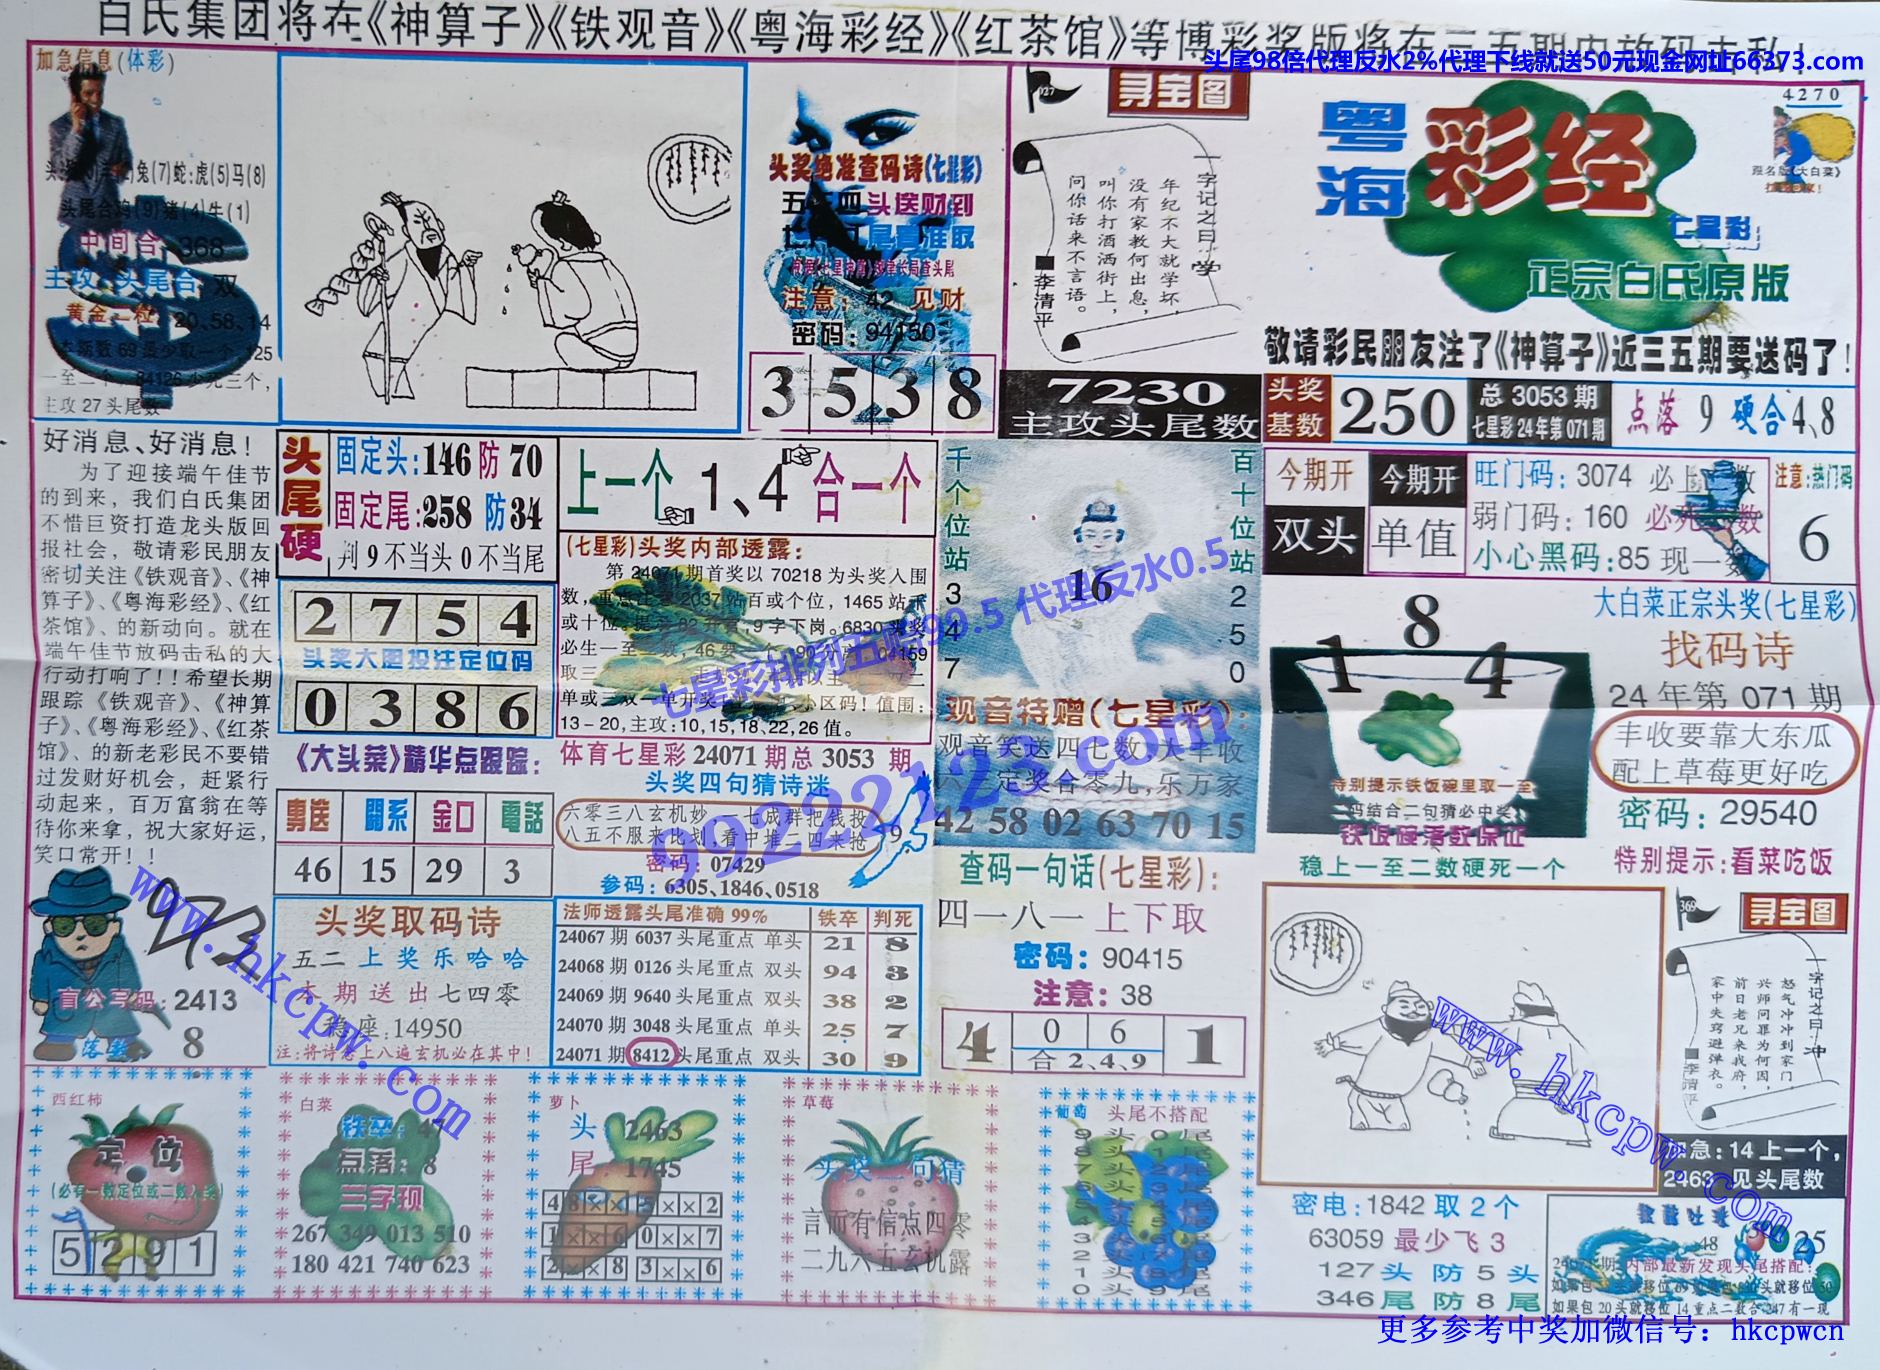 白氏集团将在《神算子》《铁观音》《粤海彩经》《红茶馆》等博彩奖版将在三五期内放码击私!
头尾98倍代理反水2%代理下线就送50元现金网址66373.com
加急信息(体彩)
兔(7)蛇:虎(5)马(8)
头尾合鸡(9)猪(4)牛(1)
中间合:368
主攻:头尾合 双
黄金二粒:20、58、14
本期数69最少取一个,125
一至二个,84126少死三个,
主攻27头尾数
头奖绝准查码诗(七星彩)
头送财到
尾喜准取
注意:42 见财
密码:94150
3 5 3 8
027
寻宝图
一字记之曰:学
年纪不大就学坏,
没有家教何出息,
叫你打酒洒街上,
问你话来不言语。
■李清平
7230
主攻头尾数
4270
粤海彩经
七星彩
正宗白氏原版
跟名版《大白菜》
敬请彩民朋友注了《神算子》近三五期要送码了!
头奖基数
250
总 3053 期
七星彩24年第071期
点落 9 硬合4、8
好消息、好消息!
为了迎接端午佳节
的到来，我们白氏集团
不惜巨资打造龙头版回
报社会，敬请彩民朋友
密切关注《铁观音》、《神
算子》、《粤海彩经》、《红
茶馆》、的新动向。就在
端午佳节放码击私的大
行动打响了!!希望长期
跟踪《铁观音》、《神算
子》、《粤海彩经》、《红茶
馆》、的新老彩民不要错
过发财好机会，赶紧行
动起来，百万富翁在等
待你来拿，祝大家好运，
笑口常开!!
头尾硬
固定头:146防70
固定尾:258防34
判9不当头0不当尾
上一个 1、4 合一个
2 7 5 4
头奖大围投注定位码
0 3 8 6
(七星彩)头奖内部透露:
第24071期首奖以70218为头奖入围
数，重点注意2037站百或个位，1465站千
9字下岗。6830头奖
单或三双一单开奖
小区码!值围:
13-20,主攻:10,15,18,22,26值。
体育七星彩24071期总3053期
头奖四句猜诗迷
六零三八玄机妙,一七成群把钱投
八五不服来比划,看中堆二四来抢
9
密码:07429
参码:6305、1846、0518
《大头菜》精华点跟踪:
勇送 關系 金口 電話
46 15 29 3
千个位站
3
4
7
百十位站
2
5
0
16
观音特赠(七星彩):
观音笑送四七数,大丰收
六一定奖合零九,乐万家
42 58 02 63 70 15
今期开 双头
今期开 单值
旺门码:3074
弱门码:160 必死
小心黑码:85 现一数
注意:热门码
6
8
1 4
特别提示铁饭碗里取一至
二码结合二句猜必中奖
铁饭碗落数保证
稳上一至二数硬死一个
大白菜正宗头奖(七星彩)
找码诗
24年第071期
丰收要靠大东瓜
配上草莓更好吃
密码:29540
特别提示:看菜吃饭
盲公写码:2413
落数 8
头奖取码诗
五二上奖乐哈哈
本期送出七四零
稳座:14950
注:将诗念上八遍玄机必在其中!
法师透露头尾准确99% 铁卒 判死
24067期 6037 头尾重点 单头 21 8
24068期 0126 头尾重点 双头 94 3
24069期 9640 头尾重点 双头 38 2
24070期 3048 头尾重点 单头 25 7
24071期 8412 头尾重点 双头 30 9
查码一句话(七星彩):
四一八一上下取
密码:90415
注意:38
4 0 6 1
合2、4、9
369
寻宝图
一字记之曰:冲
怒气冲冲到家门,
兴师问罪为何因,
前日老兄来我府,
家中失窃避弹衣。
■李清平
加急:14上一个,
2463 见头尾数
西红柿
定位
(必有一数定位或二数入奖)
5 2 9 1
白菜
铁卒:47
点落:8
三字现
267 349 013 510
180 421 740 623
萝卜
头 2463
尾 1745
4 8 × × 5 × × 2
1 × × 6 0 × × 7
2 × × 8 3 × × 6
草莓
头奖二句猜
言而有信点四零
二九六五玄机露
葡萄
头尾不搭配
9头0尾
8头1尾
7头2尾
3头6尾
2头7尾
1头8尾
0头9尾
密电:1842取2个
63059最少飞3
127头防5头
346尾防8尾
48 30 25
内部最新发现头尾搭配:
如果包20头就移位14重点二数合247有一现
七星彩排列五赔99.5 代理反水0.5
9922123.com
www.hkcpw.com
www.hkcpw.com
更多参考中奖加微信号: hkcpwcn